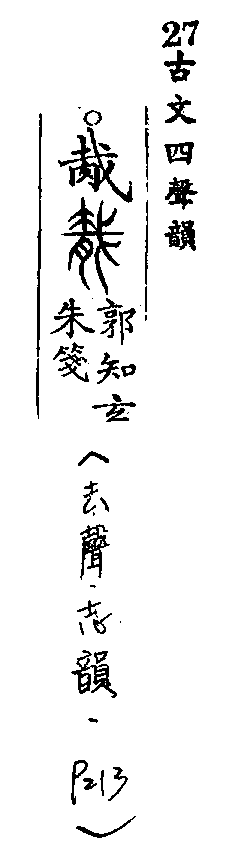 27古文四聲韻
胾
郭知玄
朱箋
(去聲.志韻、P213)